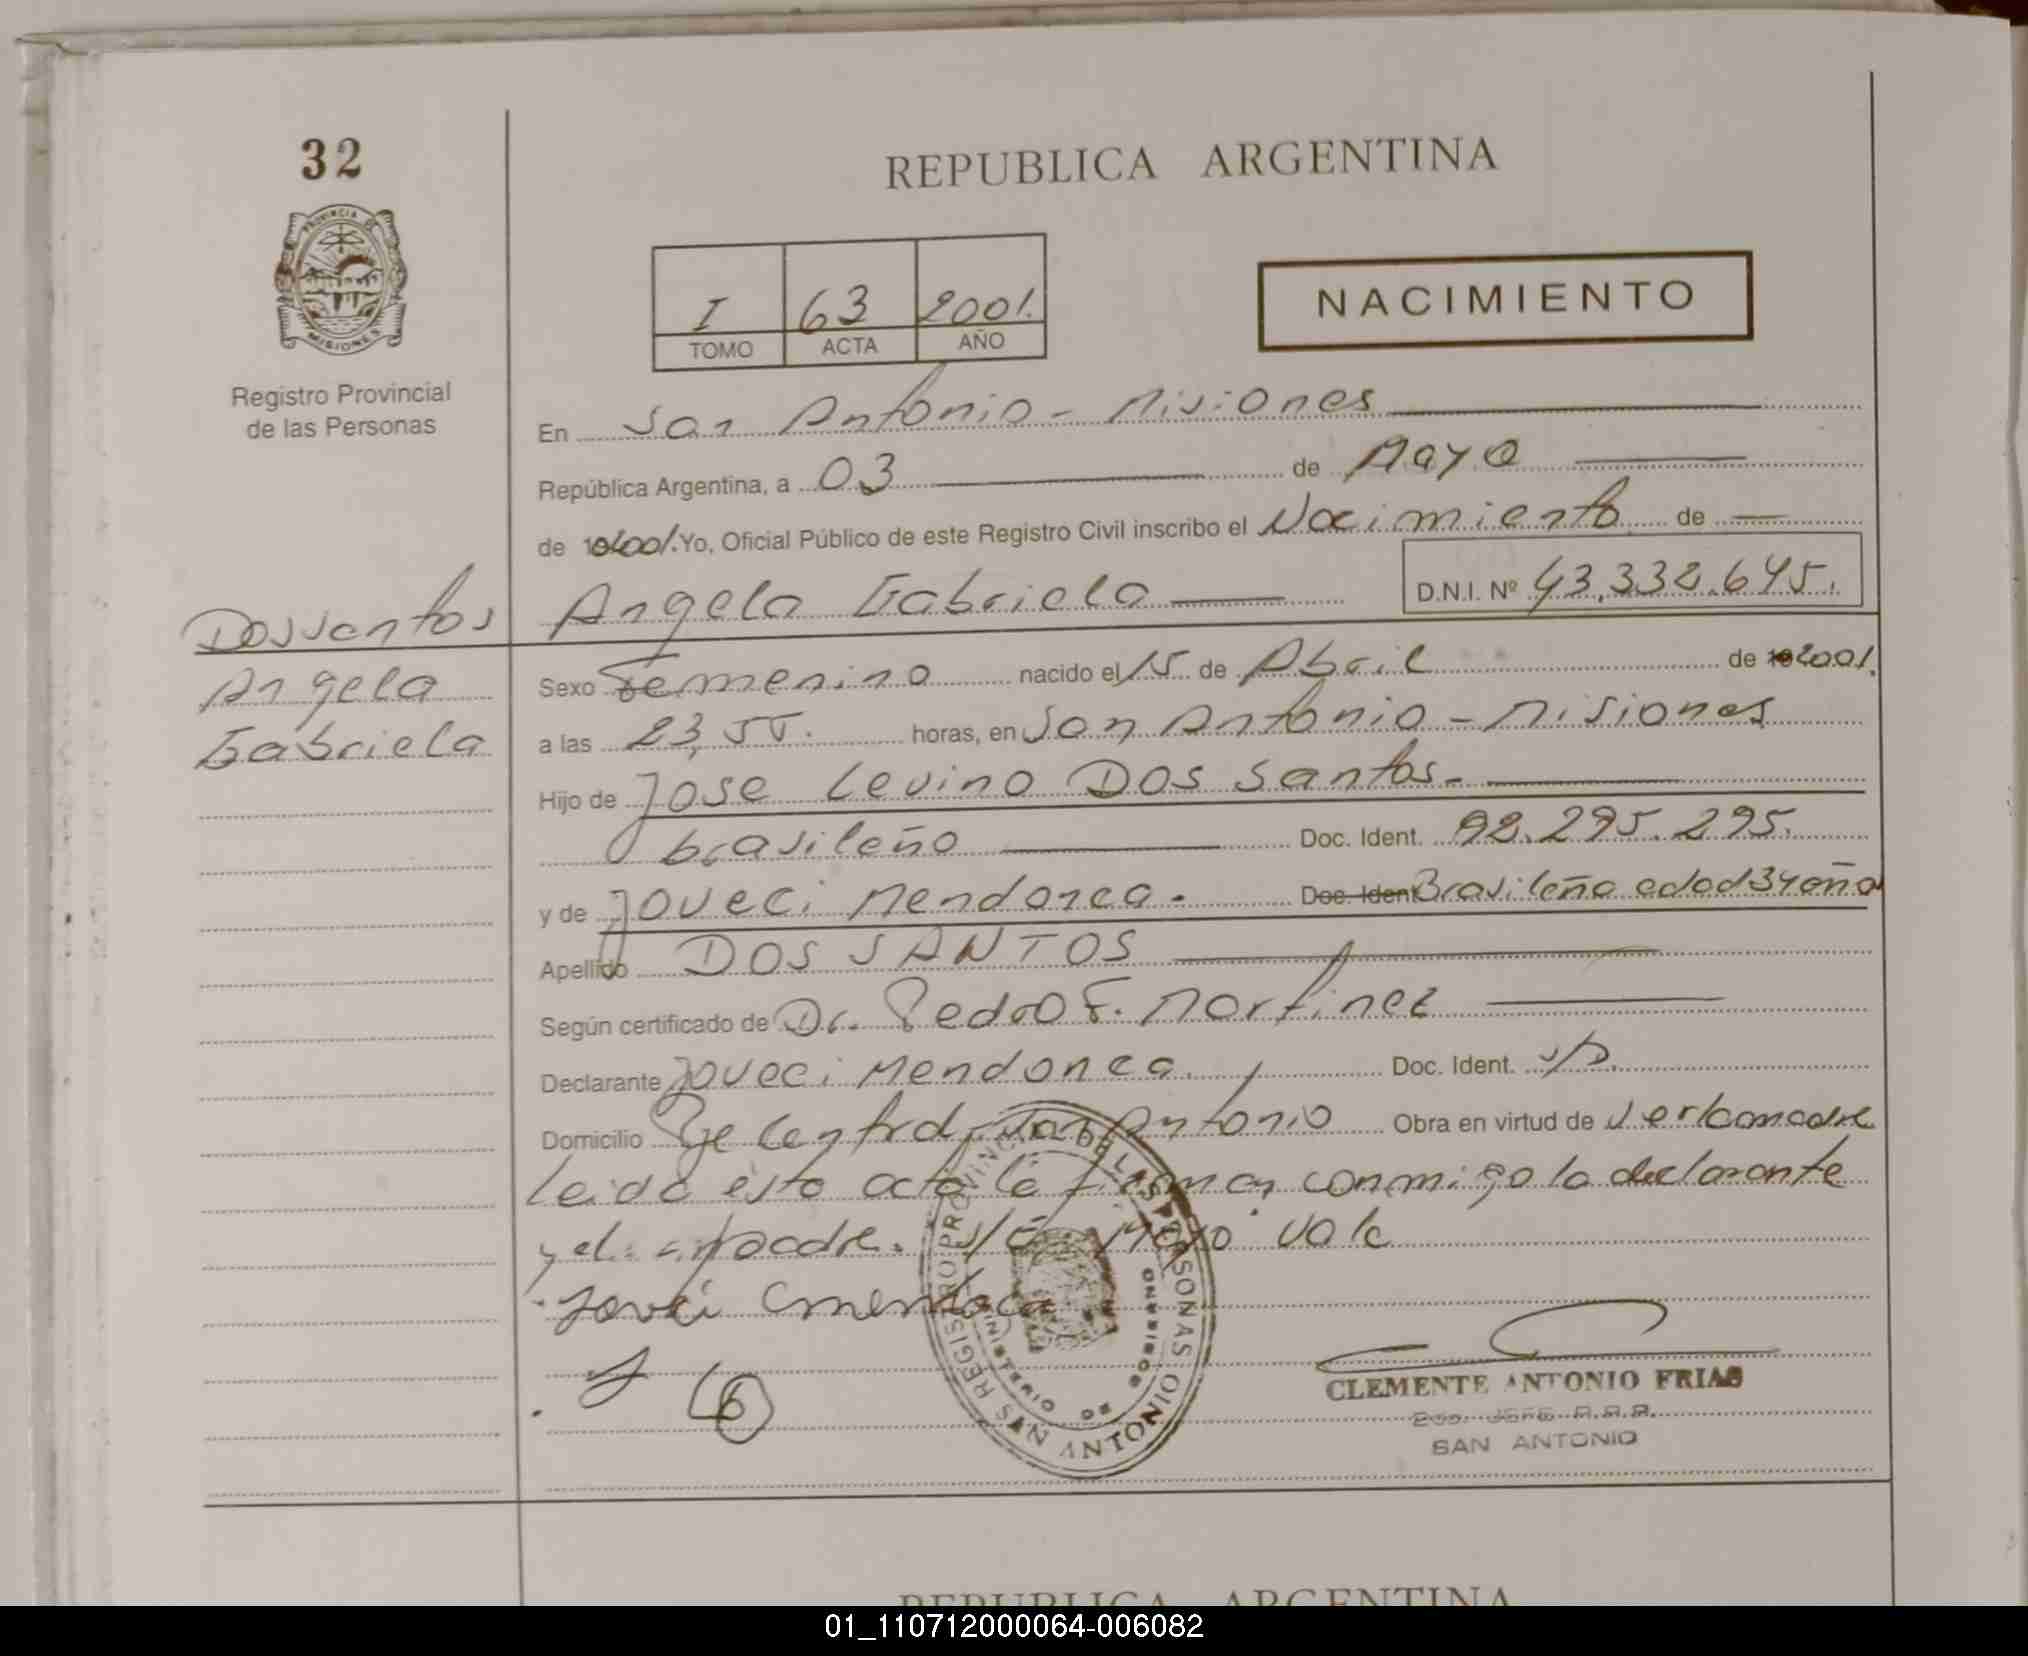 32
PROVINCIA DE
MISIONES
Registro Provincial
de las Personas
REPUBLICA ARGENTINA
I 63 2001.
TOMO ACTA AÑO
NACIMIENTO
En San Antonio - Misiones
República Argentina, a 03 de Mayo
de 2001. Yo, Oficial Público de este Registro Civil inscribo el Nacimiento de
Angela Gabriela D.N.I. Nº 43.332.645.
Dossantos
Angela
Gabriela
Sexo Femenino nacido el 15 de Abril de 2001.
a las 23,55. horas, en San Antonio - Misiones
Hijo de Jose Levino Dos Santos.-
brasileño Doc. Ident. 92.295.295.
y de Joveci Mendonca. Doc. Ident Brasileña edad 34 año
Apellido DOS SANTOS
Según certificado de Dr. Pedro F. Martinez
Declarante Joveci Mendonca. Doc. Ident. s/D.
Domicilio Pje Central, San Antonio Obra en virtud de ser la madre
Leida esta acta la firman conmigo la declarante
y el padre. Mayo vale
Joveci Mendonca
6
REGISTRO PROVINCIAL DE LAS PERSONAS
SAN ANTONIO
CLEMENTE ANTONIO FRIAS
SAN ANTONIO
REPUBLICA ARGENTINA
01_110712000064-006082